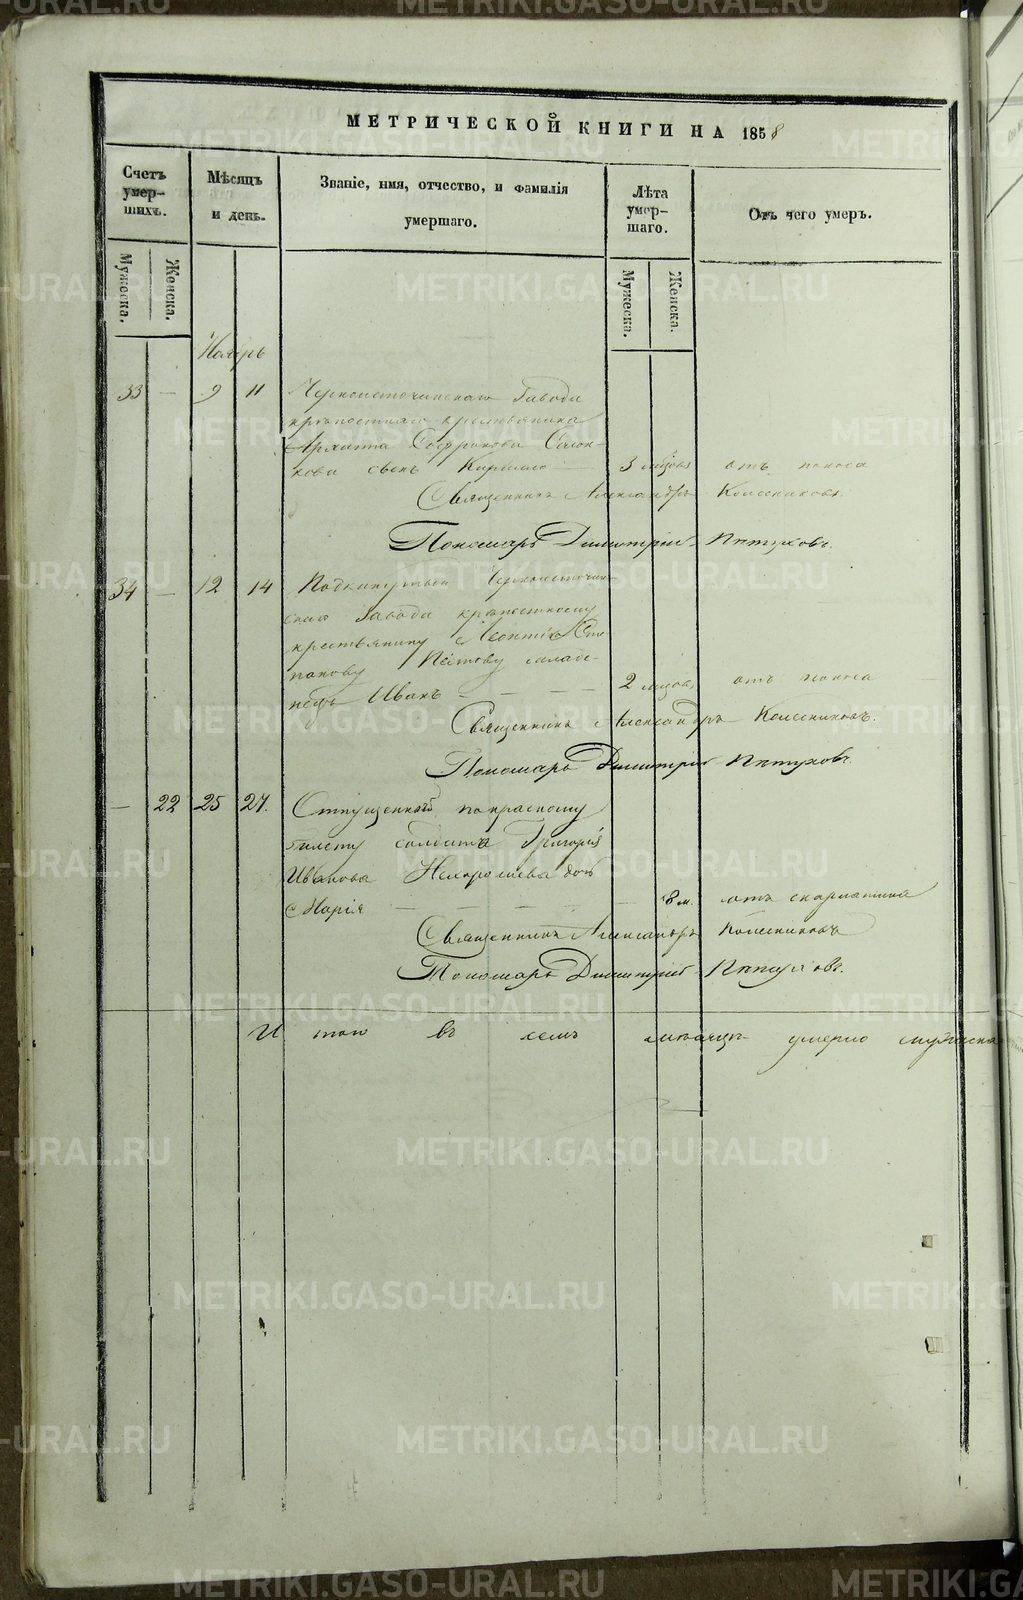 МЕТРИЧЕСКОЙ КНИГИ НА 1858
Счетъ умер-шихъ.
Мужеска.
Женска.
Мѣсяцъ и день.
Званіе, имя, отчество, и фамилія умершаго.
Лѣта умер-шаго.
Мужеска.
Женска.
Отъ чего умеръ.
Ноябрь
33 — 9 11 Черноисточинскаго Завода
крѣпостнаго крестьянина
Архипа Софронова
сынъ Кирилло — 3 мѣсяц. отъ поноса
Священникъ Александръ Колесниковъ.
Пономарь Димитрій Пѣтуховъ.
34 — 12 14 Подкинутый Черноисточин-
скаго Завода крѣпостному
крестьянину Леонтію Сте
панову младе-
нецъ Иванъ — — — — 2 мѣсяц. отъ поноса
Священникъ Александръ Колесниковъ.
Пономарь Димитрій Пѣтуховъ.
— 22 25 27. Отпущеннаго по красному
билету солдата Григорія
Иванова Нехорошева дочь
Марія — — — — 8 м. отъ скарлатины
Священникъ Александръ Колесниковъ
Пономарь Димитрій Пѣтуховъ.
И того въ семъ мѣсяцѣ умерло мужеска
METRIKI.GASO-URAL.RU